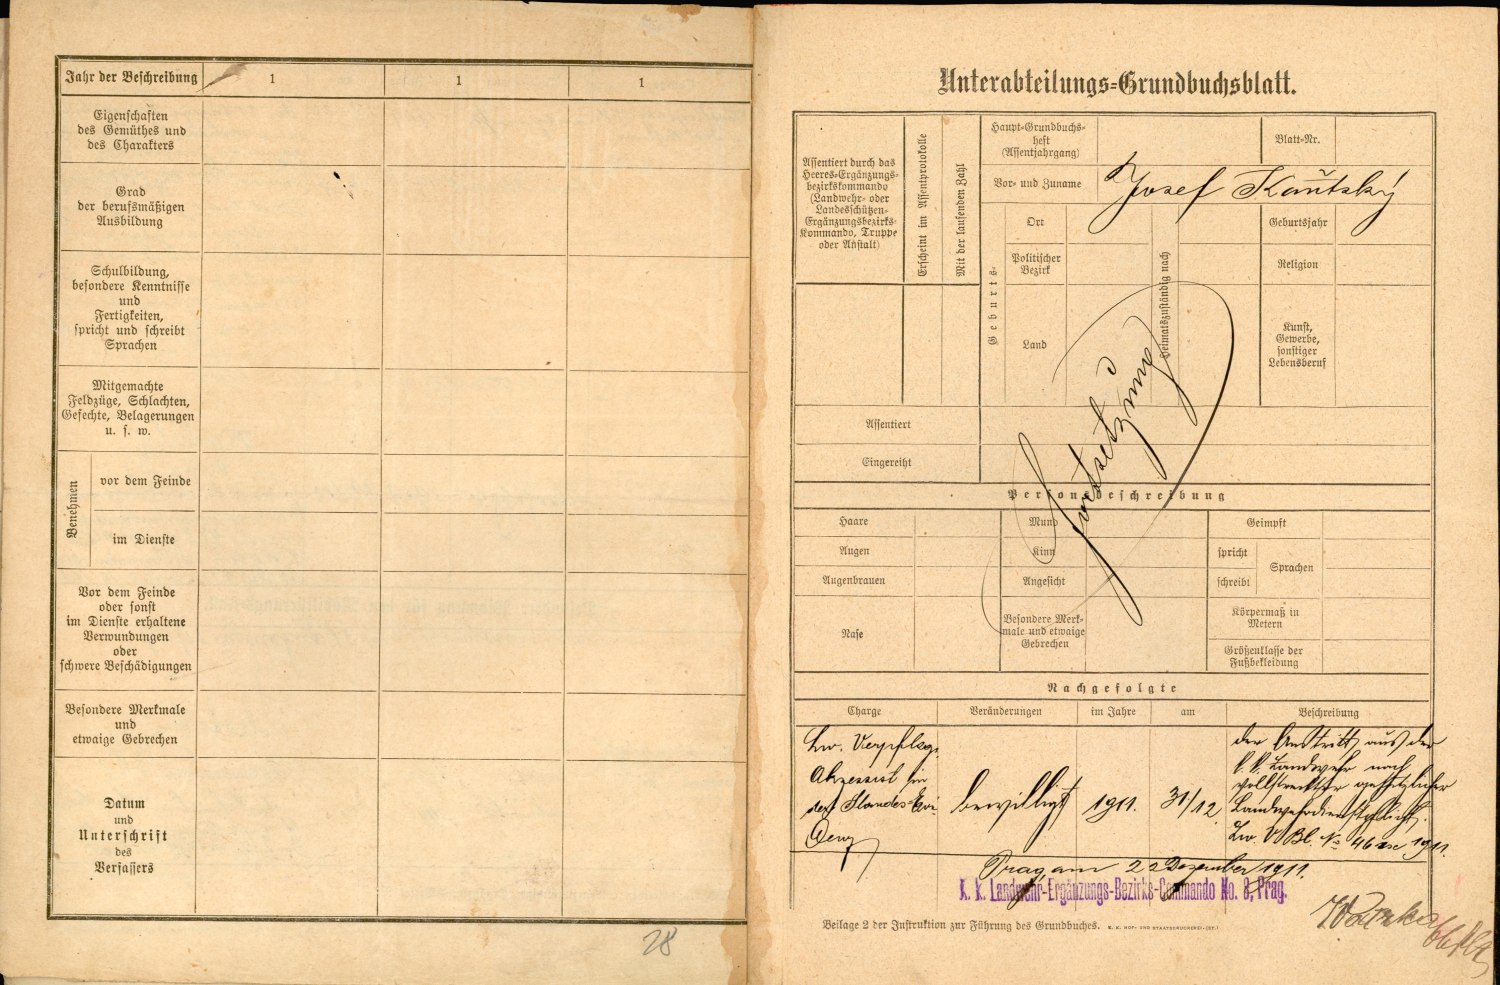 Jahr der Beschreibung
1
1
1
Eigenschaften
des Gemüthes und
des Charakters
Grad
der berufsmäßigen
Ausbildung
Schulbildung,
besondere Kenntnisse
und
Fertigkeiten,
spricht und schreibt
Sprachen
Mitgemachte
Feldzüge, Schlachten,
Gefechte, Belagerungen
u. s. w.
Benehmen
vor dem Feinde
im Dienste
Vor dem Feinde
oder sonst
im Dienste erhaltene
Verwundungen
oder
schwere Beschädigungen
Besondere Merkmale
und
etwaige Gebrechen
Datum
und
Unterschrift
des
Verfassers
28
Unterabteilungs-Grundbuchsblatt.
Assentiert durch das
Heeres-Ergänzungs-
bezirkskommando
(Landwehr- oder
Landesschützen-
Ergänzungsbezirks-
Kommando, Truppe
oder Anstalt)
Erscheint im Assentprotokolle
Mit der laufenden Zahl
Haupt-Grundbuchs-
heft
(Assentjahrgang)
Blatt-Nr.
Vor- und Zuname
Josef Kautský
Geburts-
Ort
Politischer
Bezirk
Land
Heimatszuständig nach
Geburtsjahr
Religion
Kunst,
Gewerbe,
sonstiger
Lebensberuf
Fortsetzung
Assentiert
Eingereiht
Personsbeschreibung
Haare
Mund
Geimpft
Augen
Kinn
spricht
Sprachen
Augenbrauen
Angesicht
schreibt
Nase
Besondere Merk-
male und etwaige
Gebrechen
Körpermaß in
Metern
Größenklasse der
Fußbekleidung
Nachgefolgte
Charge
Veränderungen
im Jahre
am
Beschreibung
Lw. Verpflegs-
Akzessist in
der Standes-Evi-
denz
bewilligt
1911.
31/12.
der Austritt aus der
k. k. Landwehr nach
vollstreckter gesetzlicher
Landwehrdienstpflicht.
Lw. V. Bl. No 46 1911.
Prag, am 22 Dezember 1911.
K. k. Landwehr-Ergänzungs-Bezirks-Commando No. 8, Prag.
Beilage 2 der Instruktion zur Führung des Grundbuches. K. K. HOF- UND STAATSDRUCKEREI.